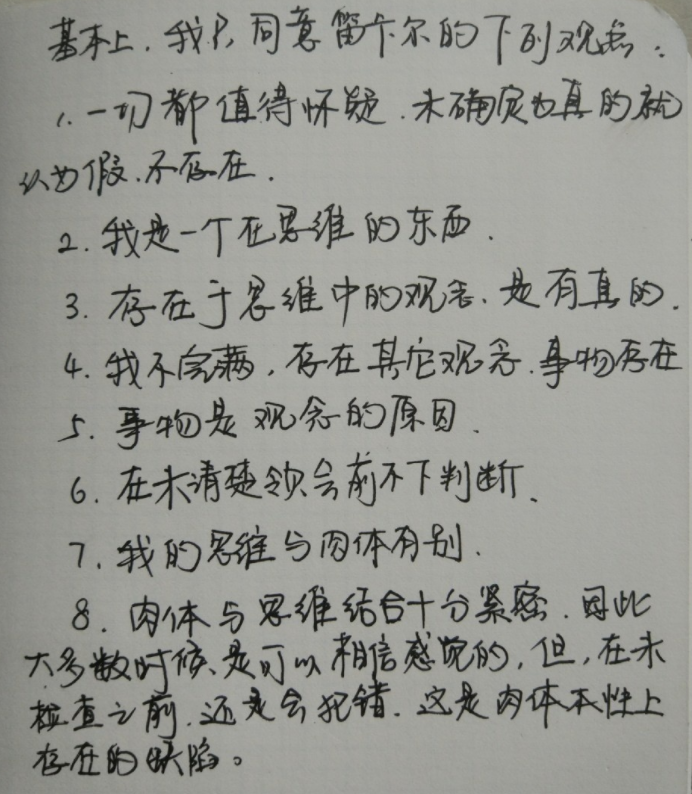 基本上，我只同意笛卡尔的下列观点：
1. 一切都值得怀疑，未确定为真的就
认为假，不存在．
2. 我是一个在思维的东西．
3. 存在于思维中的观念，是有真的．
4. 我不完满，存在其它观念，事物存在
5. 事物是观念的原因．
6. 在未清楚领会前不下判断、
7. 我的思维与肉体有别．
8. 肉体与思维结合十分紧密，因此
大多数时候，是可以相信感觉的，但，在未
检查之前，还是会犯错．这是肉体本性上
存在的缺陷。